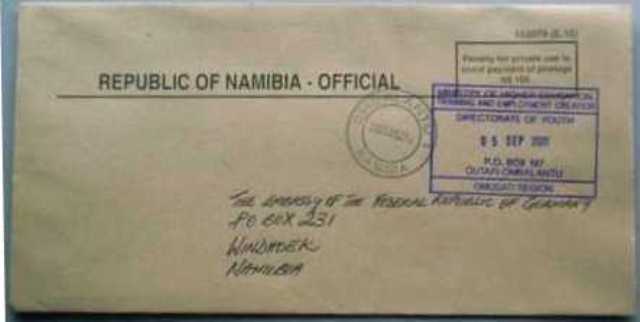 Penalty for private use to
avoid payment of postage
REPUBLIC OF NAMIBIA - OFFICIAL
MINISTRY OF HIGHER EDUCATION
TRAINING AND EMPLOYMENT CREATION
DIRECTORATE OF YOUTH
05 SEP
P.O. BOX
OUTAPI OMBALANTU
OMUSATI REGION
NAMIBIA
THE EMBASSY OF THE FEDERAL REPUBLIC OF GERMANY
PO BOX 231
WINDHOEK
NAMIBIA